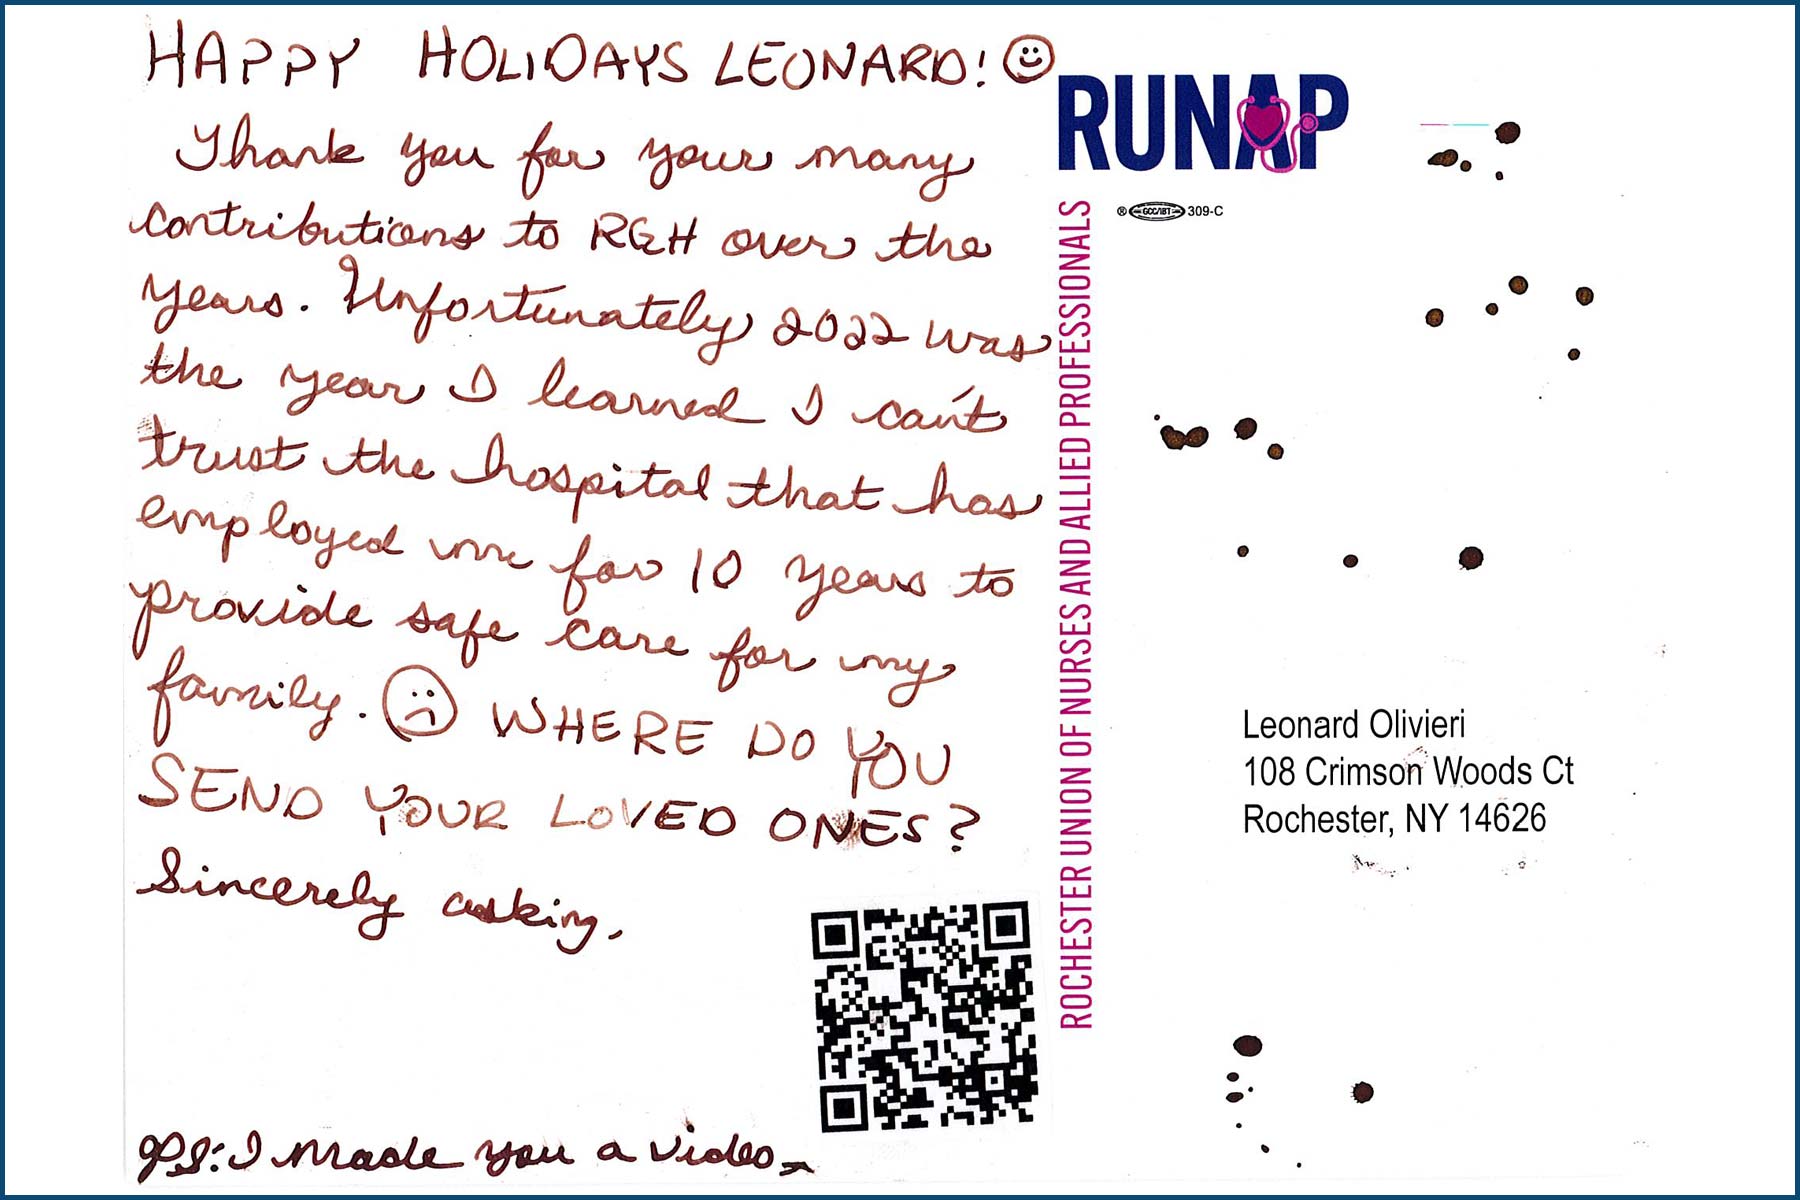 HAPPY HOLIDAYS LEONARD!
Thank you for your many
contributions to RGH over the
years. Unfortunately 2022 was
the year I learned I can't
trust the hospital that has
employed me for 10 years to
provide safe care for my
family. WHERE DO YOU
SEND YOUR LOVED ONES?
Sincerely asking,
PS: I made you a video
RUNAP
® GCC/IBT 309-C
ROCHESTER UNION OF NURSES AND ALLIED PROFESSIONALS
Leonard Olivieri
108 Crimson Woods Ct
Rochester, NY 14626